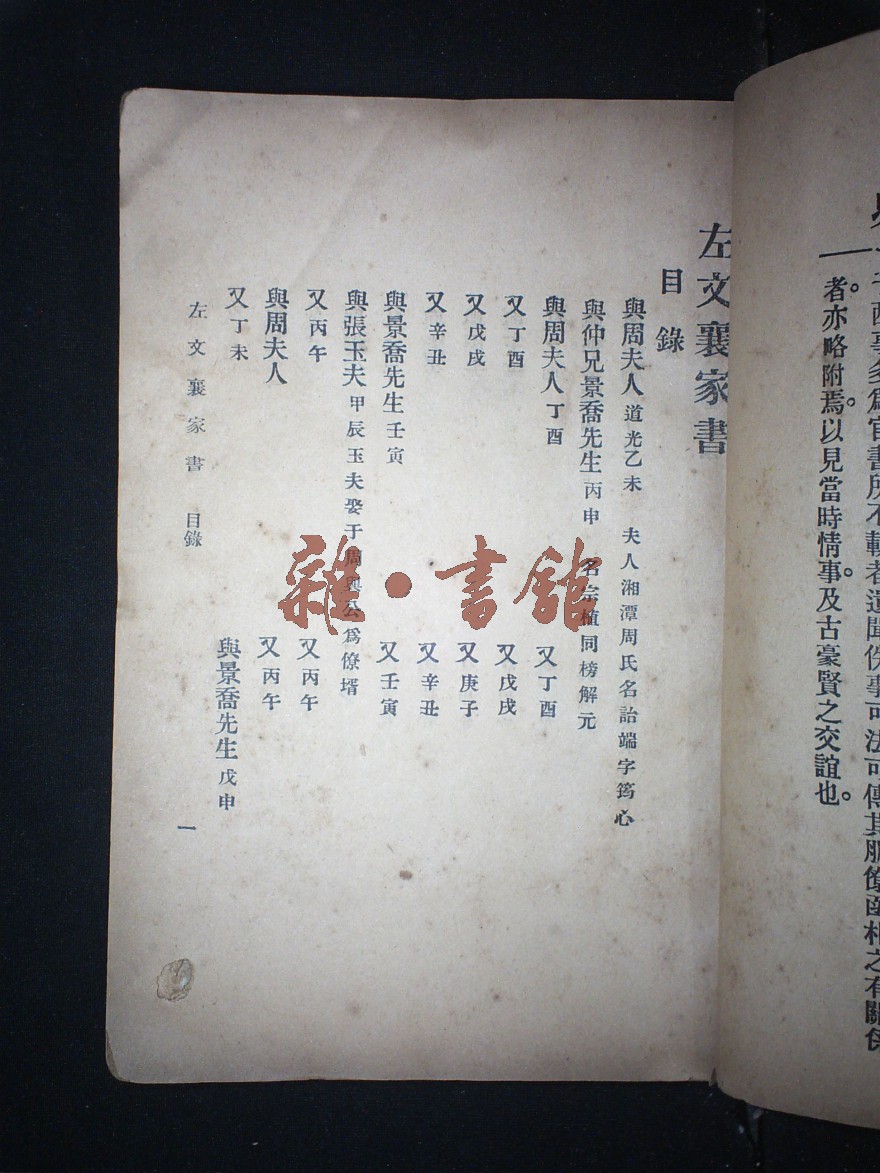 西事多爲官書所不載者遺聞佚事可法可傳其朋僚函札之有關係
者。亦略附焉。以見當時情事。及古豪賢之交誼也。
左文襄家書
目錄
與周夫人 道光乙未 夫人湘潭周氏名詒端字筠心
與仲兄景喬先生 丙申 名宗植同榜解元
與周夫人 丁酉 又 丁酉
又 丁酉 又 戊戌
又 戊戌 又 庚子
又 辛丑 又 辛丑
與景喬先生 壬寅 又 壬寅
與張玉夫 甲辰玉夫娶于周與公爲僚壻
又 丙午 又 丙午
與周夫人 又 丙午
又 丁未 與景喬先生 戊申
左文襄家書 目錄 一
雜·書館